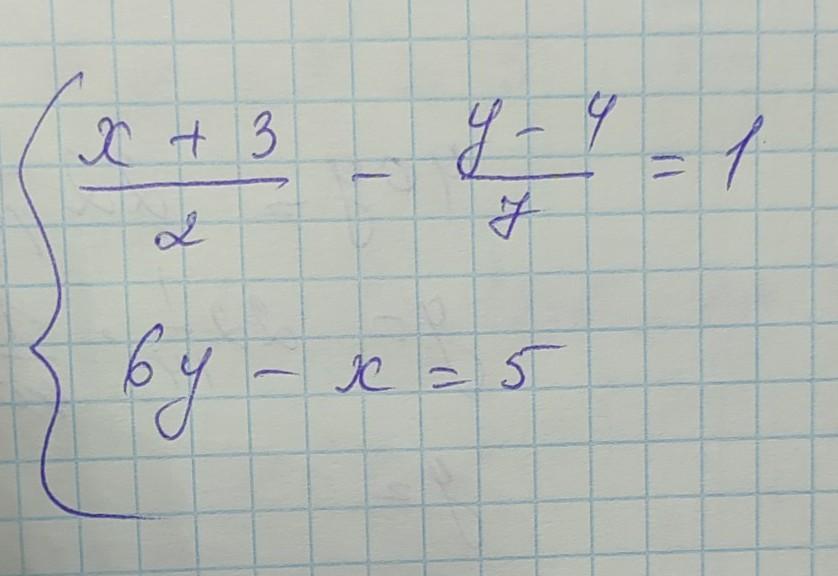 x + 3 / 2 - y - 4 / 7 = 1
6y - x = 5